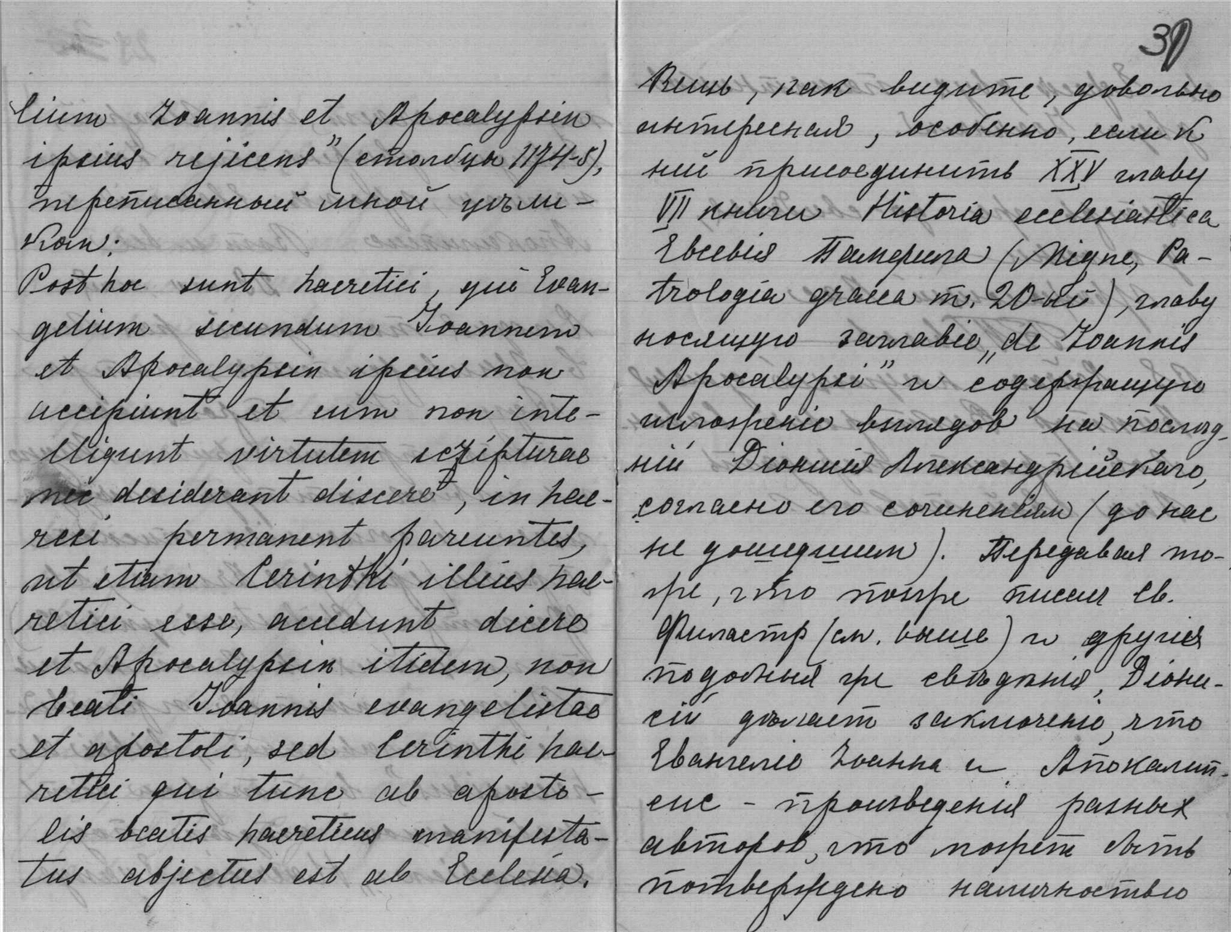 lium Ioannis et Apocalypsin
ipsius rejicens" (столбцы 1174-5),
переписанный мной цѣли-
ком:
Post hoc sunt haeretici, qui Evan-
gelium secundum Ioannem
et Apocalypsin ipsius non
accipiunt et cum non inte-
lligunt virtutem scripturae
nec desiderant discere, in hae-
resi permanent pereuntes,
ut etiam Cerinthi illius hae-
retici esse, accedunt dicere
et Apocalypsin itidem, non
beati Ioannis evangelistae
et apostoli, sed Cerinthi hae-
retici qui tunc ab aposto-
lis beatis haereticus manifesta-
tus abjectus est ab Ecclesia.
31
Вещь, как видите, довольно
интересная, особенно, если к
ней присоединить XXV главу
VII книги Historia ecclesiastica
Евсевія Памфила (Migne, Pa-
trologia graeca т. 20-ый), главу
носящую заглавіе „de Ioannis
Apocalypsi" и содержащую
изложеніе взглядов на послед-
ній Діонисія Александрійскаго,
согласно его сочиненіям (до нас
не дошедшим). Передавая то-
же, что позже писал св.
Филастр (см. выше) и другія
подобныя же свѣдѣнія, Діони-
сій дѣлает заключеніе, что
Евангеліе Іоанна и Апокалип-
сис - произведенія разных
авторов, что может быть
потверждено наличностью